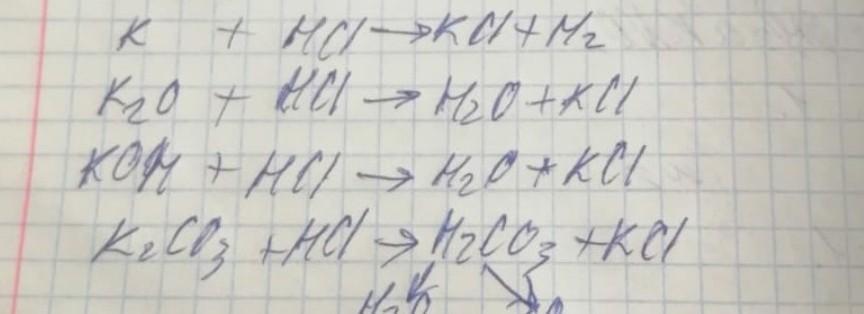 K + HCl → KCl + H₂
K₂O + HCl → H₂O + KCl
KOH + HCl → H₂O + KCl
K₂CO₃ + HCl → H₂CO₃ + KCl
H₂O